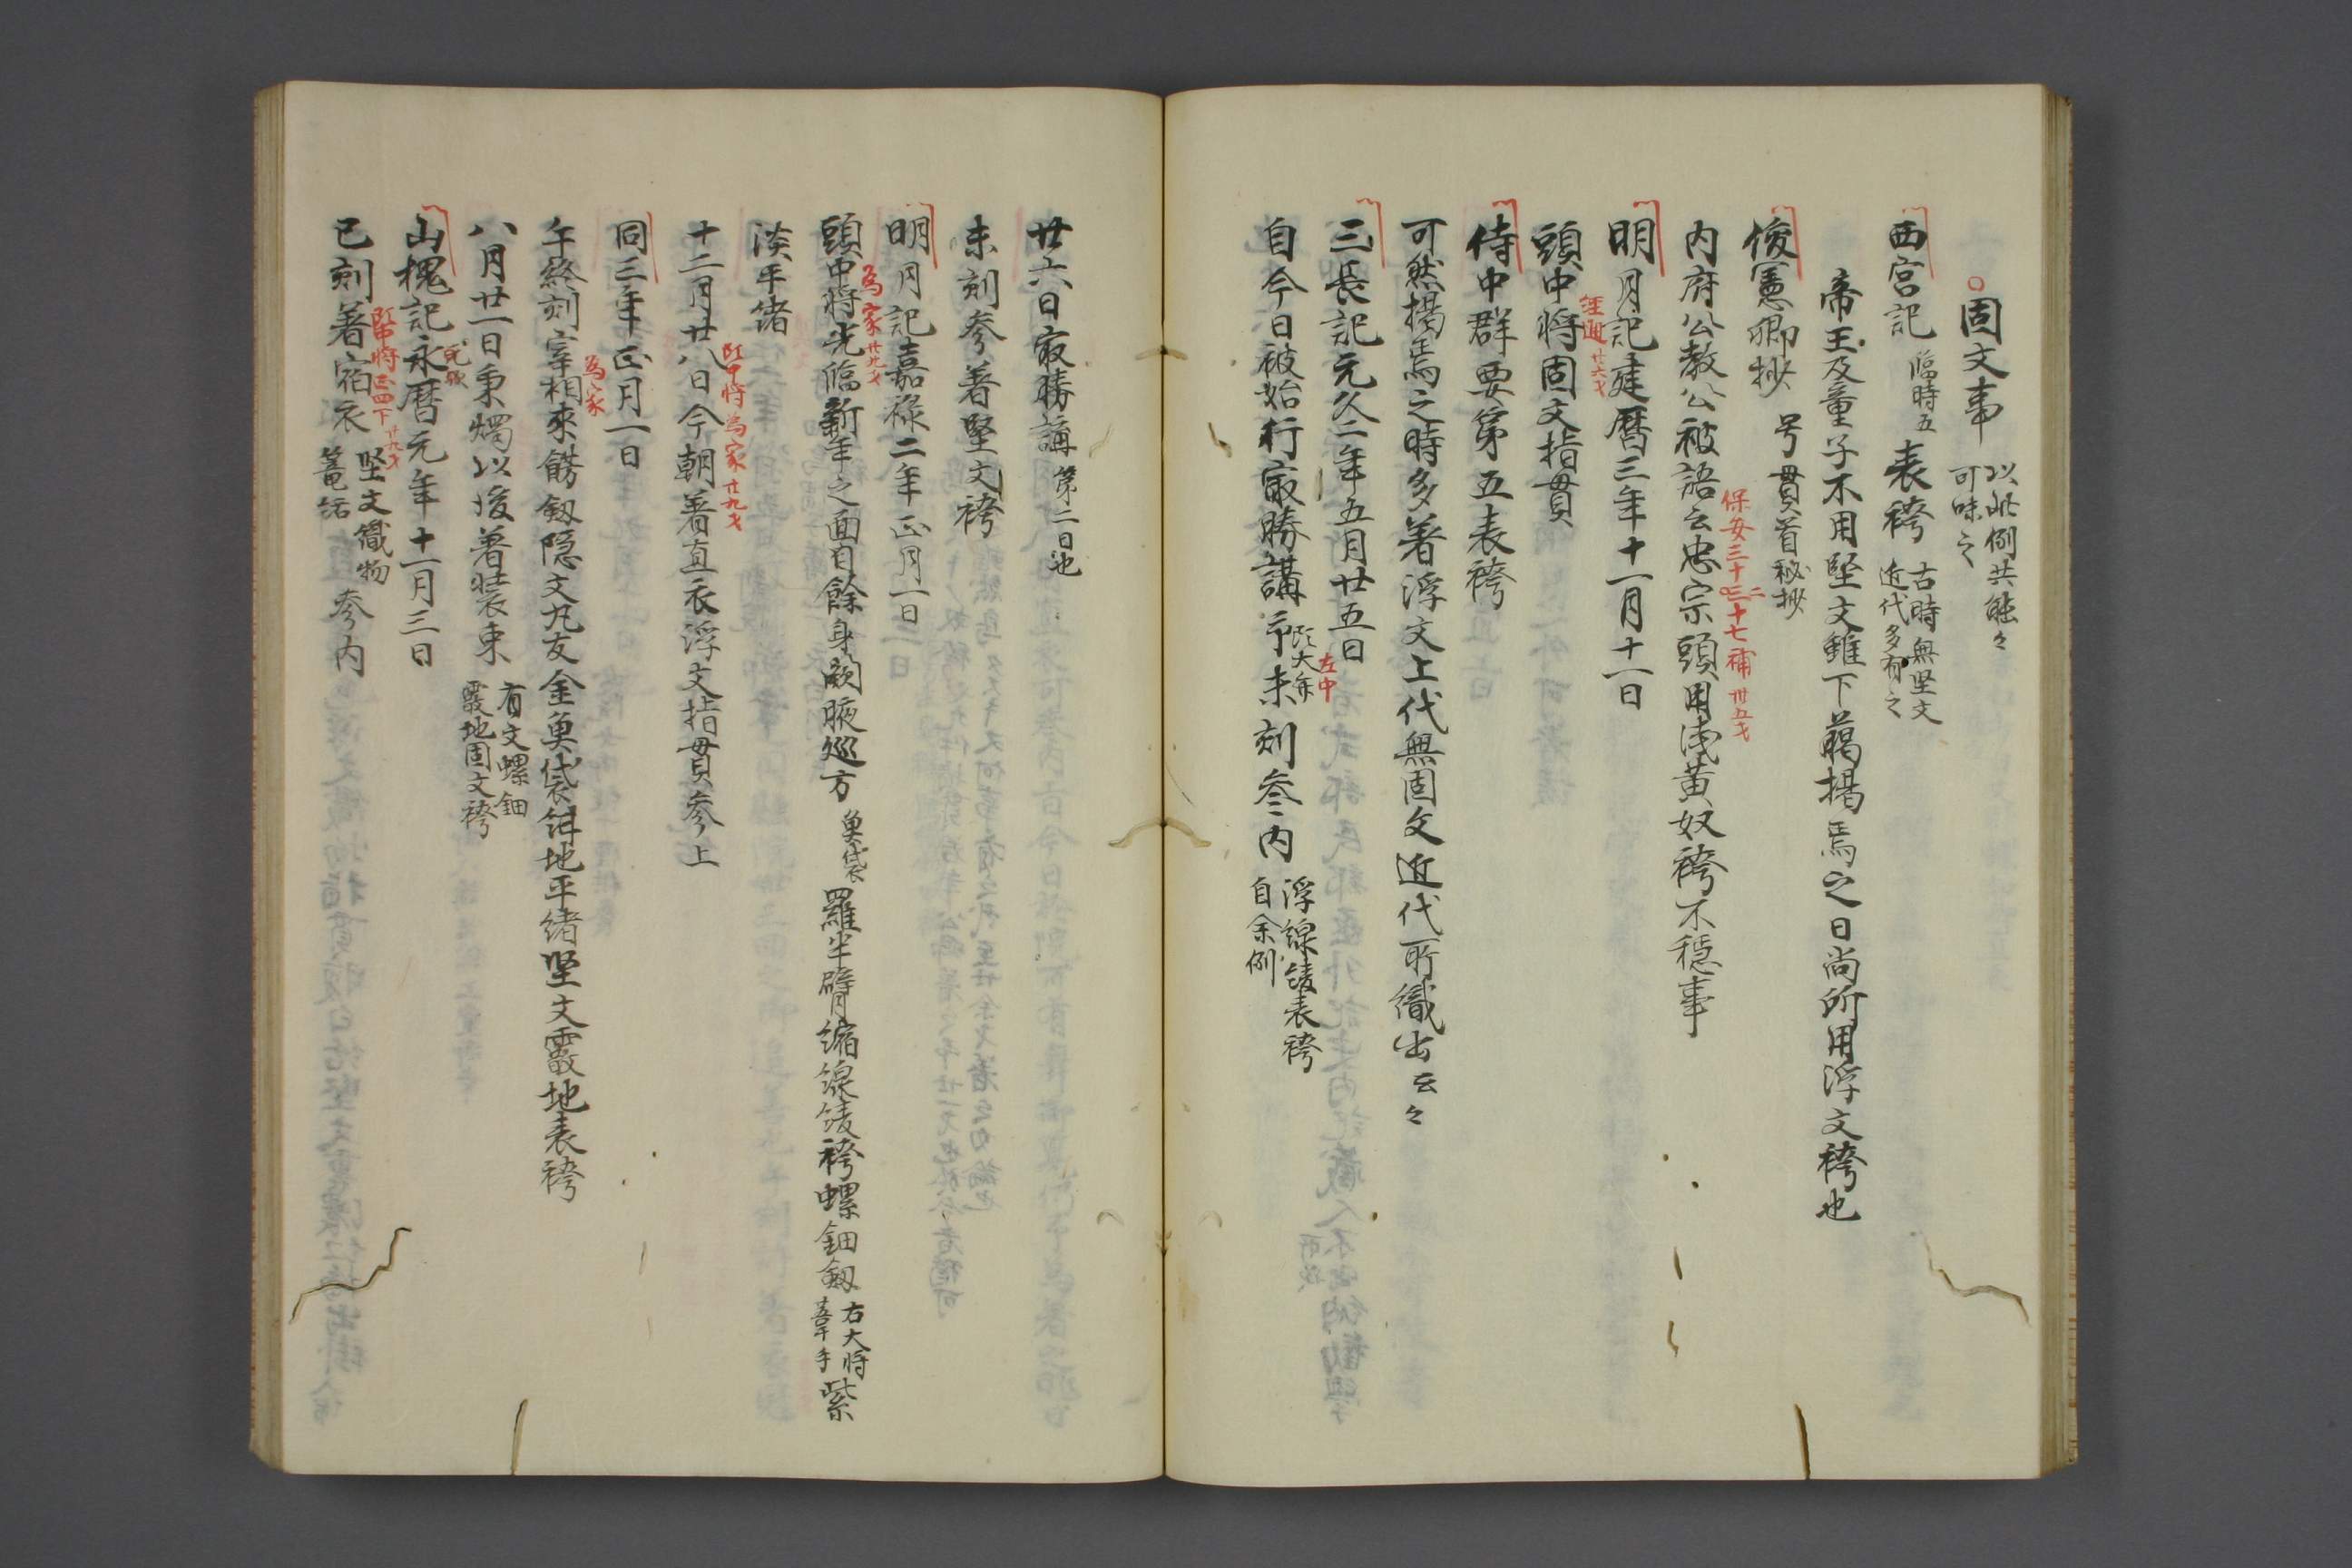 ○固文事 以此例共能々可味之
西宮記 臨時五 表袴 古時無堅文近代多有之
帝王及童子不用堅文雖下萠揚焉之日尚所用浮文袴也
俊憲卿抄 号貫首秘抄
保安三十二十七補卅五才
内府公教公被語云忠宗頭用浅黄奴袴不穏事
明月記建暦三年十一月十一日
経通廿六才
頭中将固文指貫
侍中群要第五表袴
可然揚焉之時多著浮文上代無固文近代所織出云々
三長記元久二年五月廿五日
左中
自今日被始行最勝講予未刻参内 浮線綾表袴自余例
廿六日最勝講 第二日也
未刻参著堅文袴
明月記嘉禄二年正月一日
為家廿九才
頭中将光臨新年之面目餘身闕腋巡方 魚袋 羅半臂縮線綾袴螺鈿釼 右大将 紫
淡平緒
紅中将為家廿九才
十二月廿八日今朝著直衣浮文指貫参上
同三年正月一日
為家
午終刻宰相来餝釼隠文丸友金魚袋紺地平緒堅文霰地表袴
八月廿一日秉燭以後著装束 有文螺鈿霰地固文袴
山槐記永暦元年十一月三日
正四下廿九才
巳刻著宿衣 堅文織物 参内